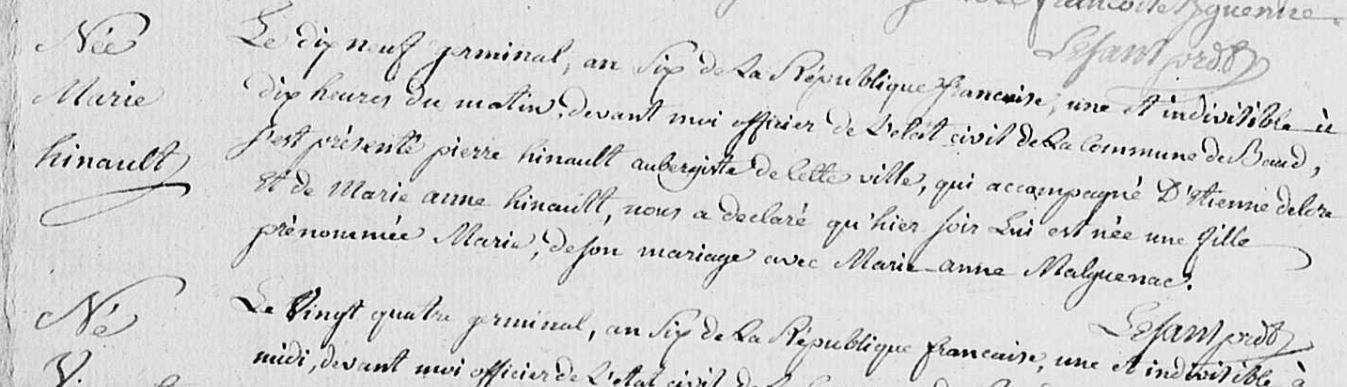 françoise Yguenne.
Lesant prdt
Née
Marie
hinault
Le dix neuf germinal, an six de La République française, une et indivisible à
dix heures du matin, devant moi officier de L'etat civil de La Commune de Baud,
s'est présenté pierre hinault aubergiste de Cette ville, qui accompagné D'etienne
et de Marie anne hinault, nous a declaré qu'hier soir Lui est née une fille
prénommée Marie, de son mariage avec Marie-anne Malguenac.
Lesant prdt
Né
Le Vingt quatre germinal, an six de La République française, une et indivisible à
midi, devant moi officier de L'etat civil de La